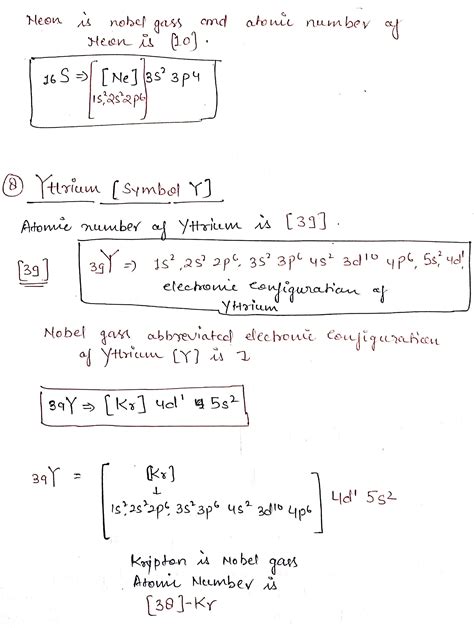 Neon is nobel gass and atomic number of
Neon is [10].
16S ⇒ [[Ne]] 3s² 3p4
1s²,2s²2p6
⑧ Yttrium [Symbol Y]
Atomic number of Yttrium is [39].
[39]
39Y ⇒ 1s², 2s² 2p6, 3s² 3p6 4s² 3d10 4p6, 5s², 4d1
electronic configuration of
Yttrium
Nobel gass abbreviated electronic configuration
of Yttrium [Y] is :
39Y ⇒ [Kr] 4d1 5s2
39Y = [[Kr]] 4d1 5s2
1s²,2s²2p6, 3s²3p6 4s² 3d10 4p6
Kripton is Nobel gass
Atomic Number is
[38]-Kr